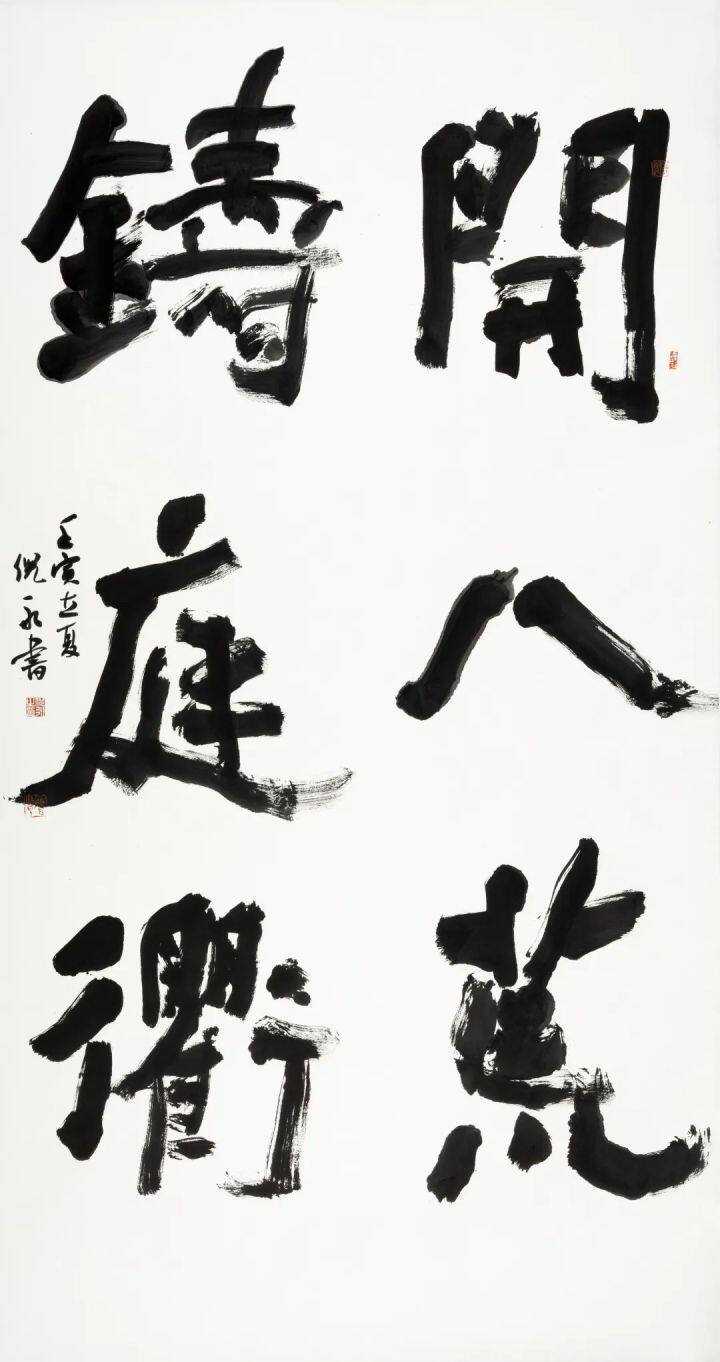 開八荒
鑄庭衢
壬寅立夏
倪永書